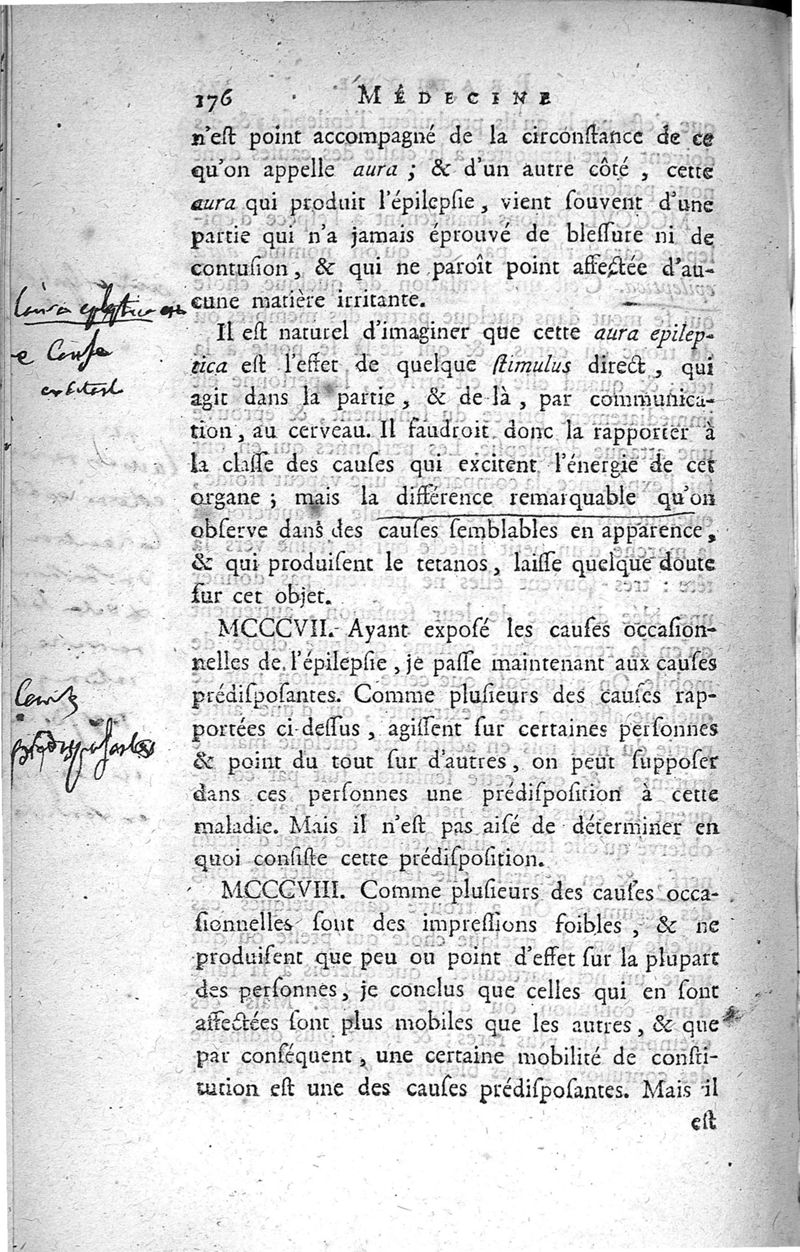 176 MÉDECINE
n'eſt point accompagné de la circonſtance de ce
qu'on appelle aura ; & d'un autre côté , cette
aura qui produit l'épilepſie, vient ſouvent d'une
partie qui n'a jamais éprouvé de bleſſure ni de
contuſion, & qui ne paroît point affectée d'au-
cune matière irritante.
Il eſt naturel d'imaginer que cette aura epilep-
tica eſt l'effet de quelque ſtimulus direct, qui
agit dans la partie, & de-là, par communica-
tion, au cerveau. Il faudroit donc la rapporter à
la claſſe des cauſes qui excitent l'énergie de cet
organe ; mais la différence remarquable qu'on
obſerve dans des cauſes ſemblables en apparence,
& qui produiſent le tetanos, laiſſe quelque doute
ſur cet objet.
MCCCVII. Ayant expoſé les cauſes occaſion-
nelles de l'épilepſie, je paſſe maintenant aux cauſes
prédiſpoſantes. Comme pluſieurs des cauſes rap-
portées ci-deſſus, agiſſent ſur certaines perſonnes
& point du tout ſur d'autres, on peut ſuppoſer
dans ces perſonnes une prédiſpoſition à cette
maladie. Mais il n'eſt pas aiſé de déterminer en
quoi conſiſte cette prédiſpoſition.
MCCCVIII. Comme pluſieurs des cauſes occa-
ſionnelles ſont des impreſſions foibles, & ne
produiſent que peu ou point d'effet ſur la plupart
des perſonnes, je conclus que celles qui en ſont
affectées ſont plus mobiles que les autres, & que
par conſéquent, une certaine mobilité de conſti-
tution eſt une des cauſes prédiſpoſantes. Mais il
eſt